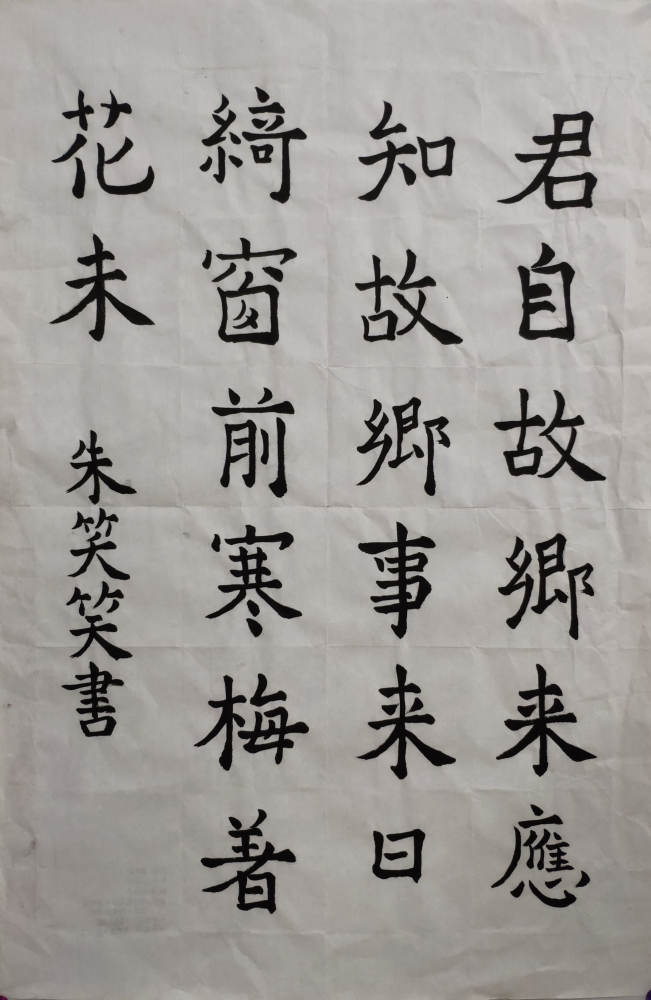 君自故鄉来應
知故鄉事来日
綺窗前寒梅著
花未
朱笑笑書